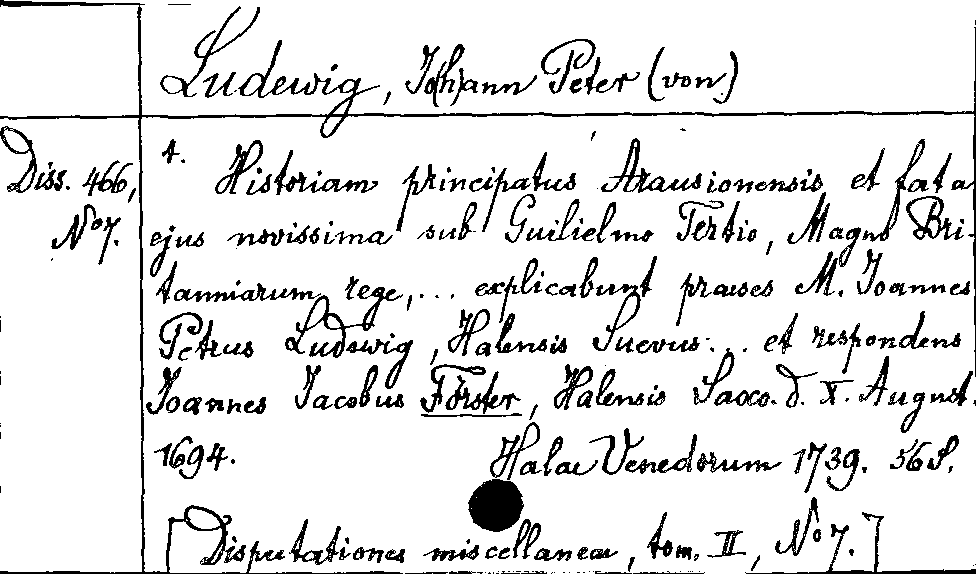 Ludewig, Jo(h)ann Peter (von)
Diss. 466,
No 7.
1. Historiam principatus Arausionensis et fata
ejus novissima sub Guilielmo Tertio, Magno Bri-
tanniarum rege,... explicabunt praeses M. Joannes
Petrus Ludewig, Halensis Suevus... et respondens
Joannes Jacobus Förster, Halensis Saxo. d. X. August.
1694. Halae Venedorum 1739. 56 S.
[Disputationes miscellaneae, tom. II, No 7.]